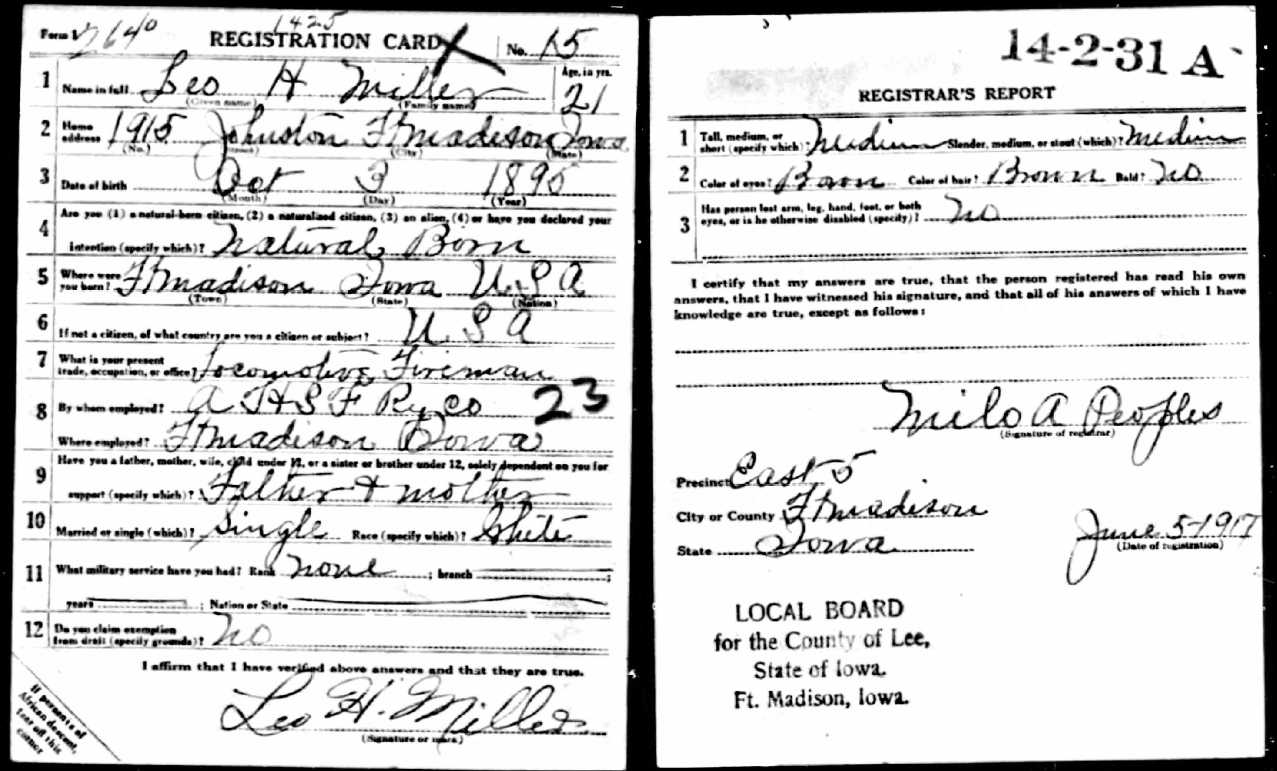 Form 1 2640 1425 REGISTRATION CARD X No. 15
1 Name in full Leo H Miller Age, in yrs. 21
(Given name) (Family name)
2 Home address 1915 Johnston Ft Madison Iowa
(No.) (Street) (City) (State)
3 Date of birth Oct 3 1895
(Month) (Day) (Year)
4 Are you (1) a natural-born citizen, (2) a naturalized citizen, (3) an alien, (4) or have you declared your
intention (specify which)? Natural Born
5 Where were you born? Ft Madison Iowa U.S.A
(Town) (State) (Nation)
6 If not a citizen, of what country are you a citizen or subject? U S A
7 What is your present trade, occupation, or office? Locomotive Fireman
8 By whom employed? A T & S F Ry Co 23
Where employed? Ft Madison Iowa
9 Have you a father, mother, wife, child under 12, or a sister or brother under 12, solely dependent on you for
support (specify which)? Father & mother
10 Married or single (which)? Single Race (specify which)? White
11 What military service have you had? Rank none ; branch ;
years ; Nation or State
12 Do you claim exemption from draft (specify grounds)? No
I affirm that I have verified above answers and that they are true.
Leo H. Miller
(Signature or mark)
If person is of
African descent,
tear off this
corner
14-2-31 A
REGISTRAR'S REPORT
1 Tall, medium, or short (specify which)? Medium Slender, medium, or stout (which)? Medium
2 Color of eyes? Brown Color of hair? Brown Bald? No
3 Has person lost arm, leg, hand, foot, or both
eyes, or is he otherwise disabled (specify)? No
I certify that my answers are true, that the person registered has read his own
answers, that I have witnessed his signature, and that all of his answers of which I have
knowledge are true, except as follows:
Milo A Peoples
(Signature of registrar)
Precinct East 5
City or County Ft Madison
State Iowa
June 5-1917
(Date of registration)
LOCAL BOARD
for the County of Lee,
State of Iowa.
Ft. Madison, Iowa.